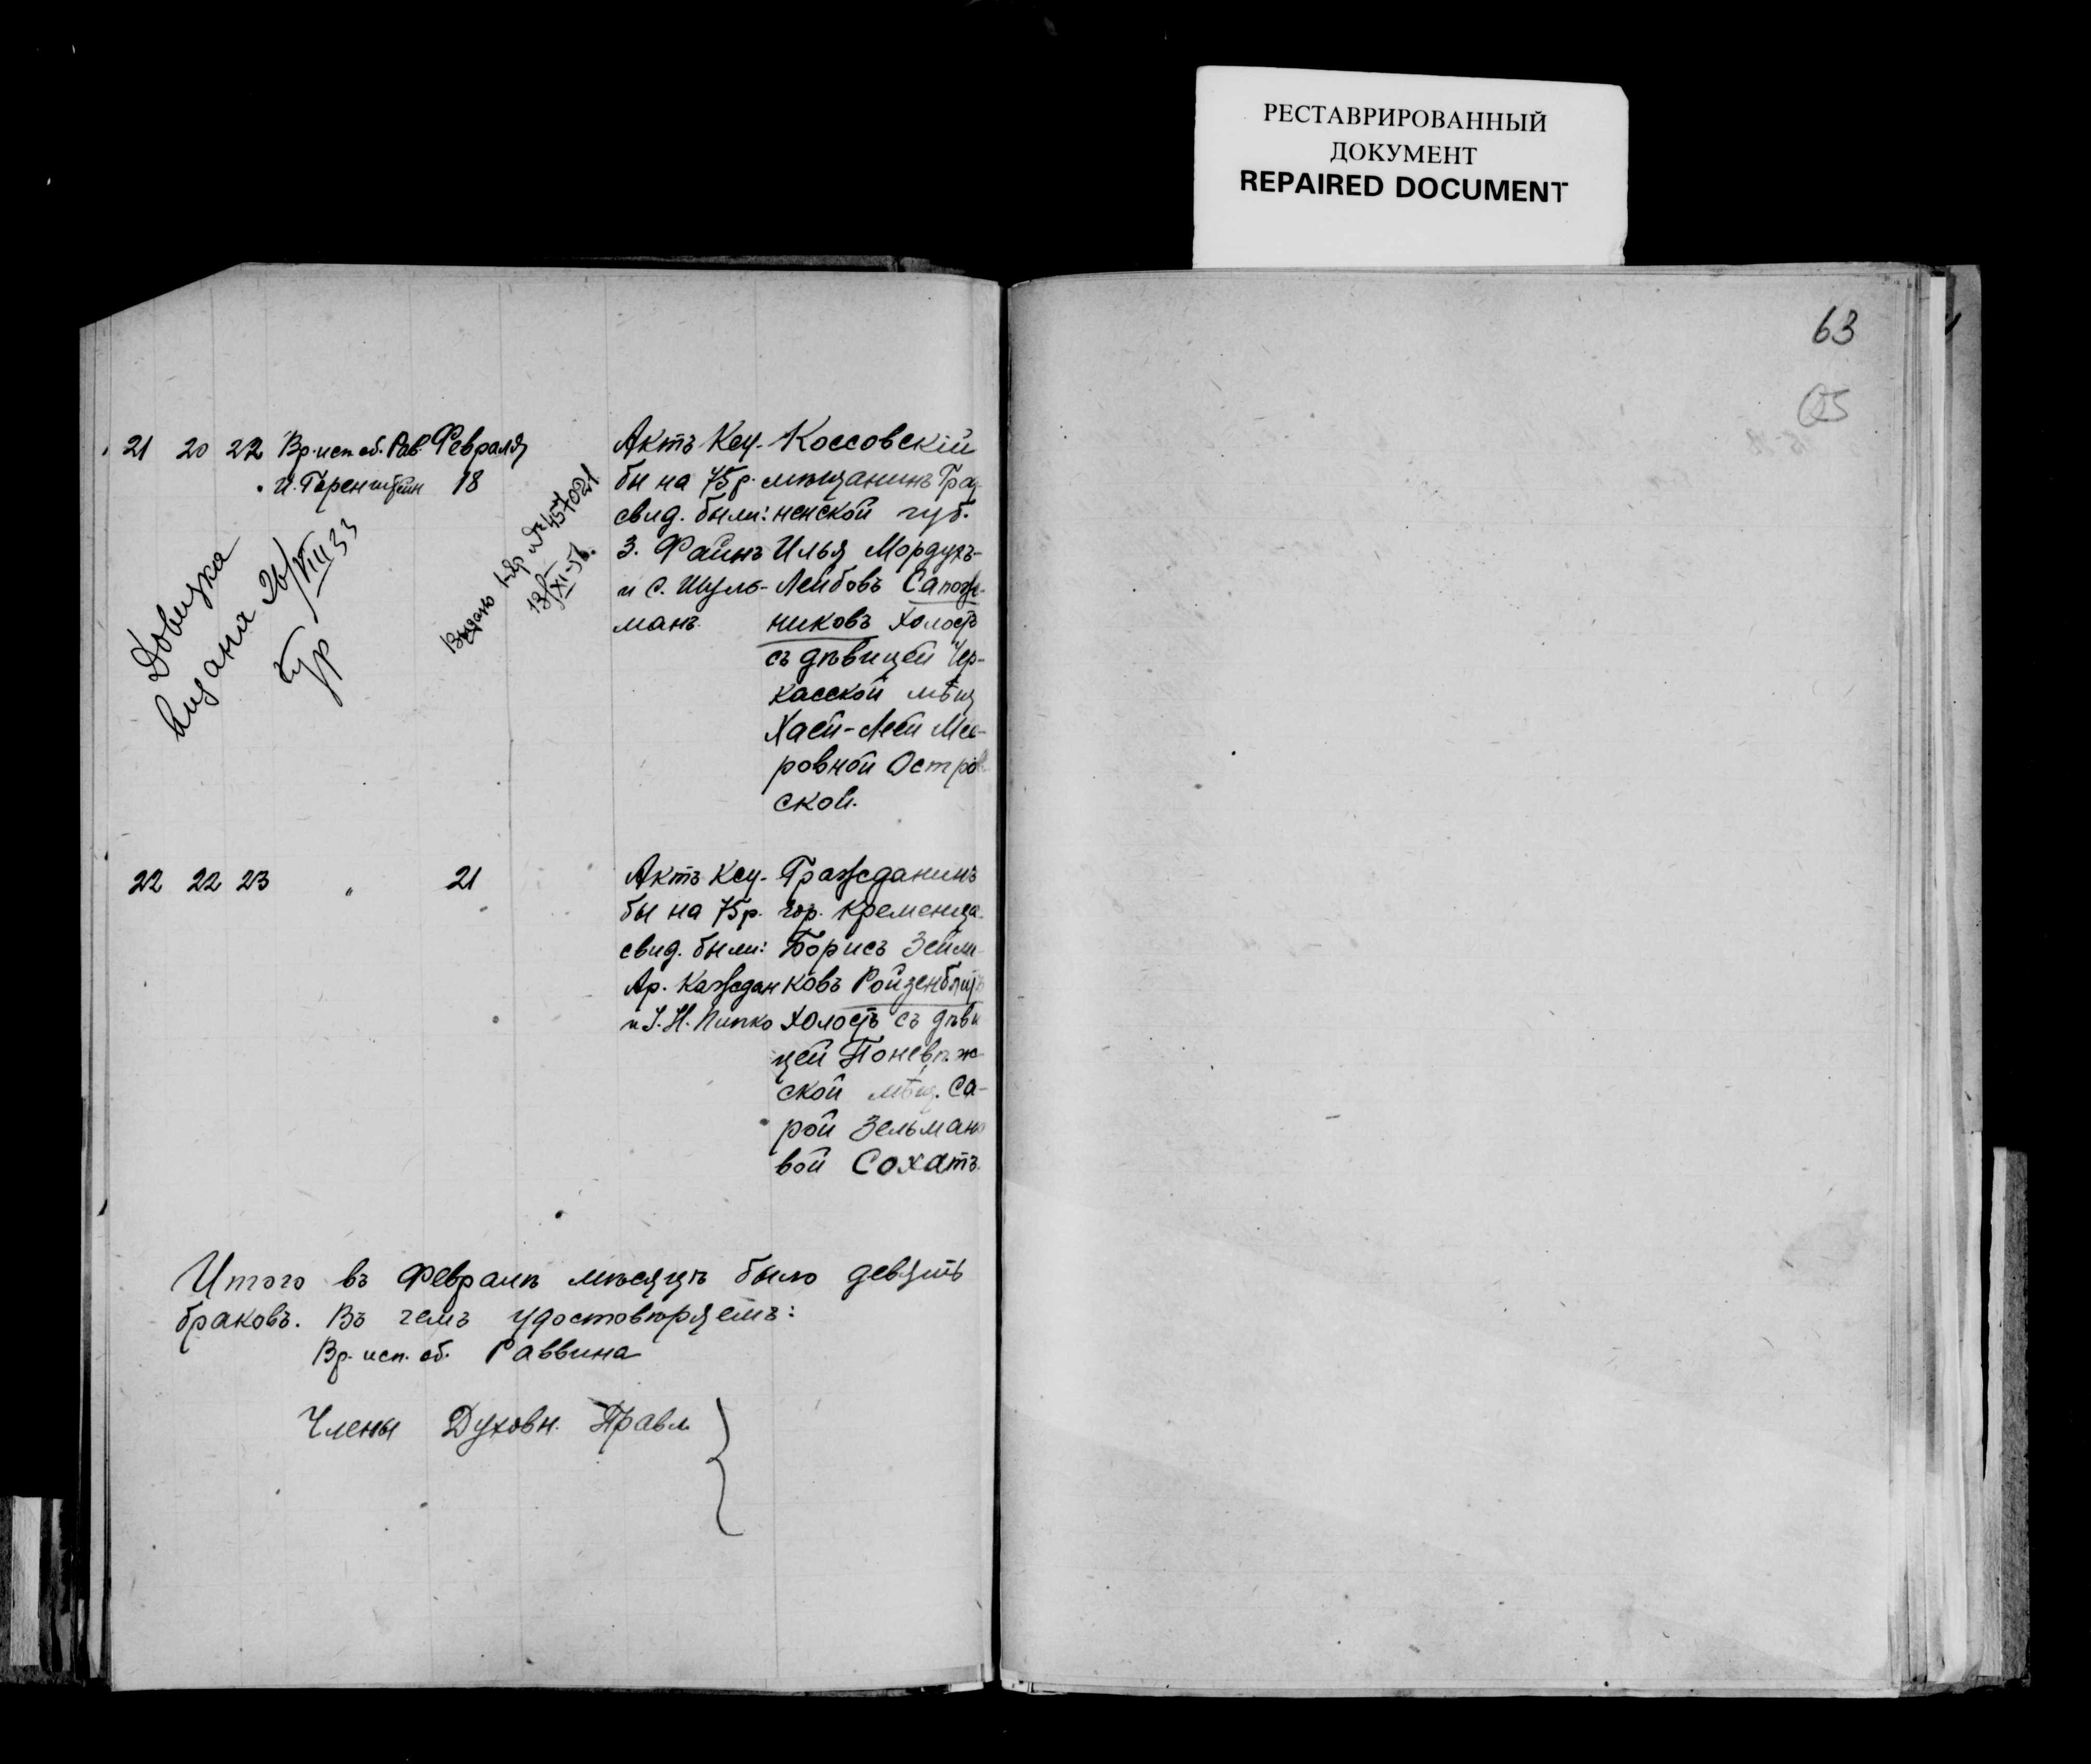 РЕСТАВРИРОВАННЫЙ
ДОКУМЕНТ
REPAIRED DOCUMENT
63
21 20 22 Вр. исп. об. Рав. Февраля
И. Горенштейн 18
Актъ Кеу-
бы на 75 р.
свид. были:
З. Файнъ
и С. Шуль-
манъ
Коссовскій
мѣщанинъ Грод-
ненской губ.
Илья Мордухъ-
Лейбовъ Сапож-
никовъ холостъ
съ дѣвицей Чер-
касской мѣщ
Хаей-Леей Мее-
ровной Остров
ской.
Довидка
видана 26/VIII 33
Выдано
13/XI-51.
22 22 23 " 21
Актъ Кеу-
бы на 75 р.
свид. были:
Ар. Каждан
и I. Н. Пипко
Гражданинъ
гор. Кременца
Борисъ Зейли-
ковъ Ройзенблитъ
холостъ съ дѣви
цей Поневѣж-
ской мѣщ. Са-
рой Зельмано
вой Сохатъ.
Итого въ Февралѣ мѣсяцѣ было девять
браковъ. Въ чемъ удостовѣряемъ:
Вр. исп. об. Раввина
Члены Духовн. Правл